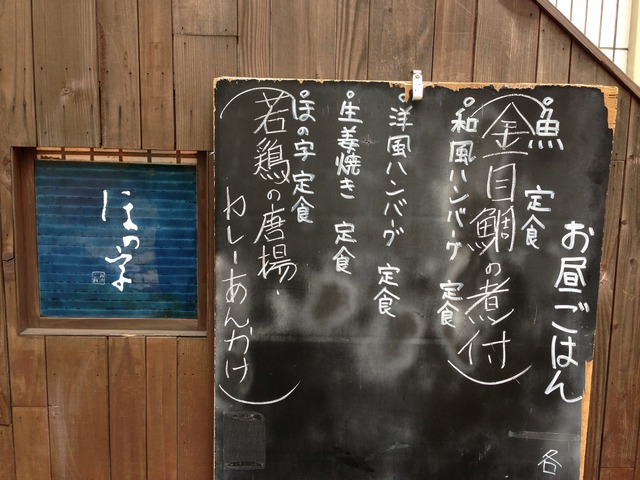 お昼ごはん
魚 定食
(金目鯛の煮付)
和風ハンバーグ 定食
洋風ハンバグ 定食
生姜焼き 定食
ほの字 定食
(若鶏の唐揚
カレーあんかけ)
各
ほの字